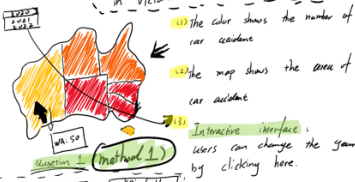 in Victor
2020
2021
2022
(1) The color shows the number of
car accident
(2) The map shows the area of
car accident
(3) Interactive interface:
users can change the year
by clicking here.
WA: 50
Question 1 (method 1)